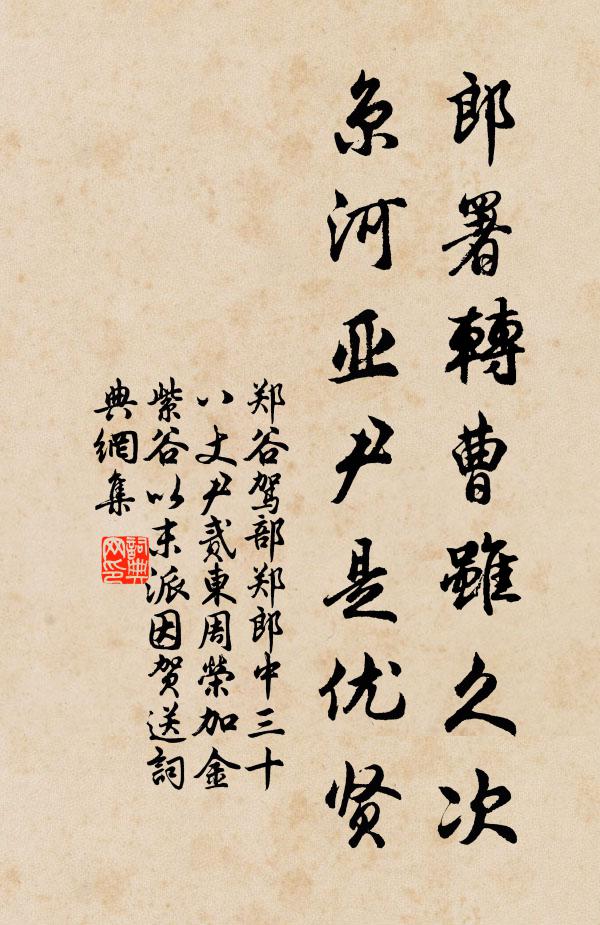 郎署轉曹雖久次
京河亚尹是优贤
郑谷驾部郑郎中三十
八丈尹贰東周榮加金
紫谷以末派因贺送詞
典網集
詞典
网印